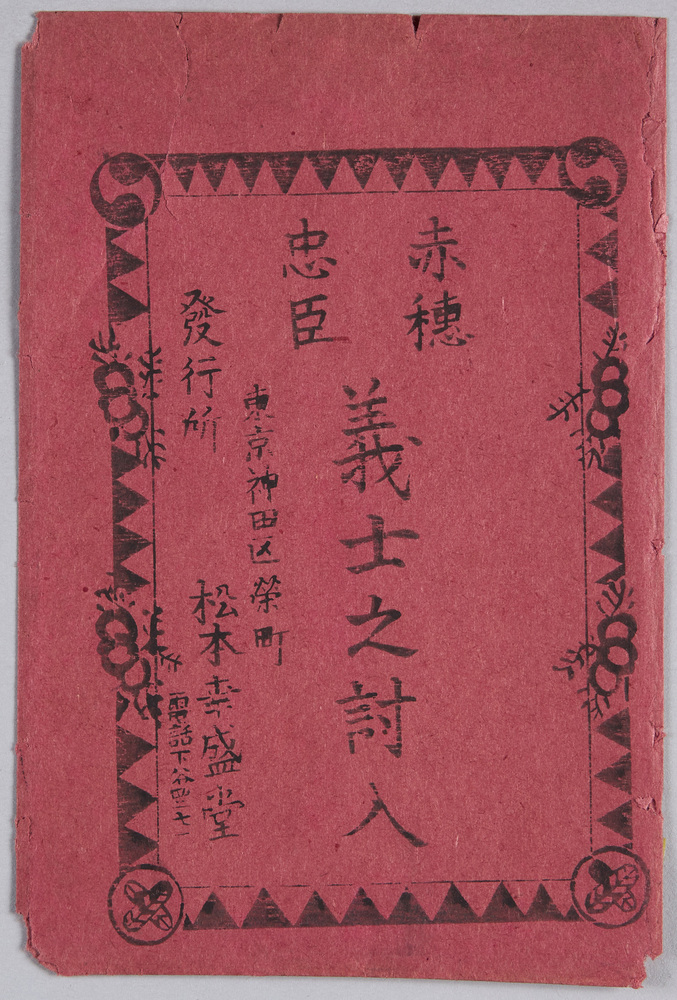 赤穂
忠臣
義士之討入
東京神田区榮町
發行所
松本幸盛堂
電話下谷四三七一